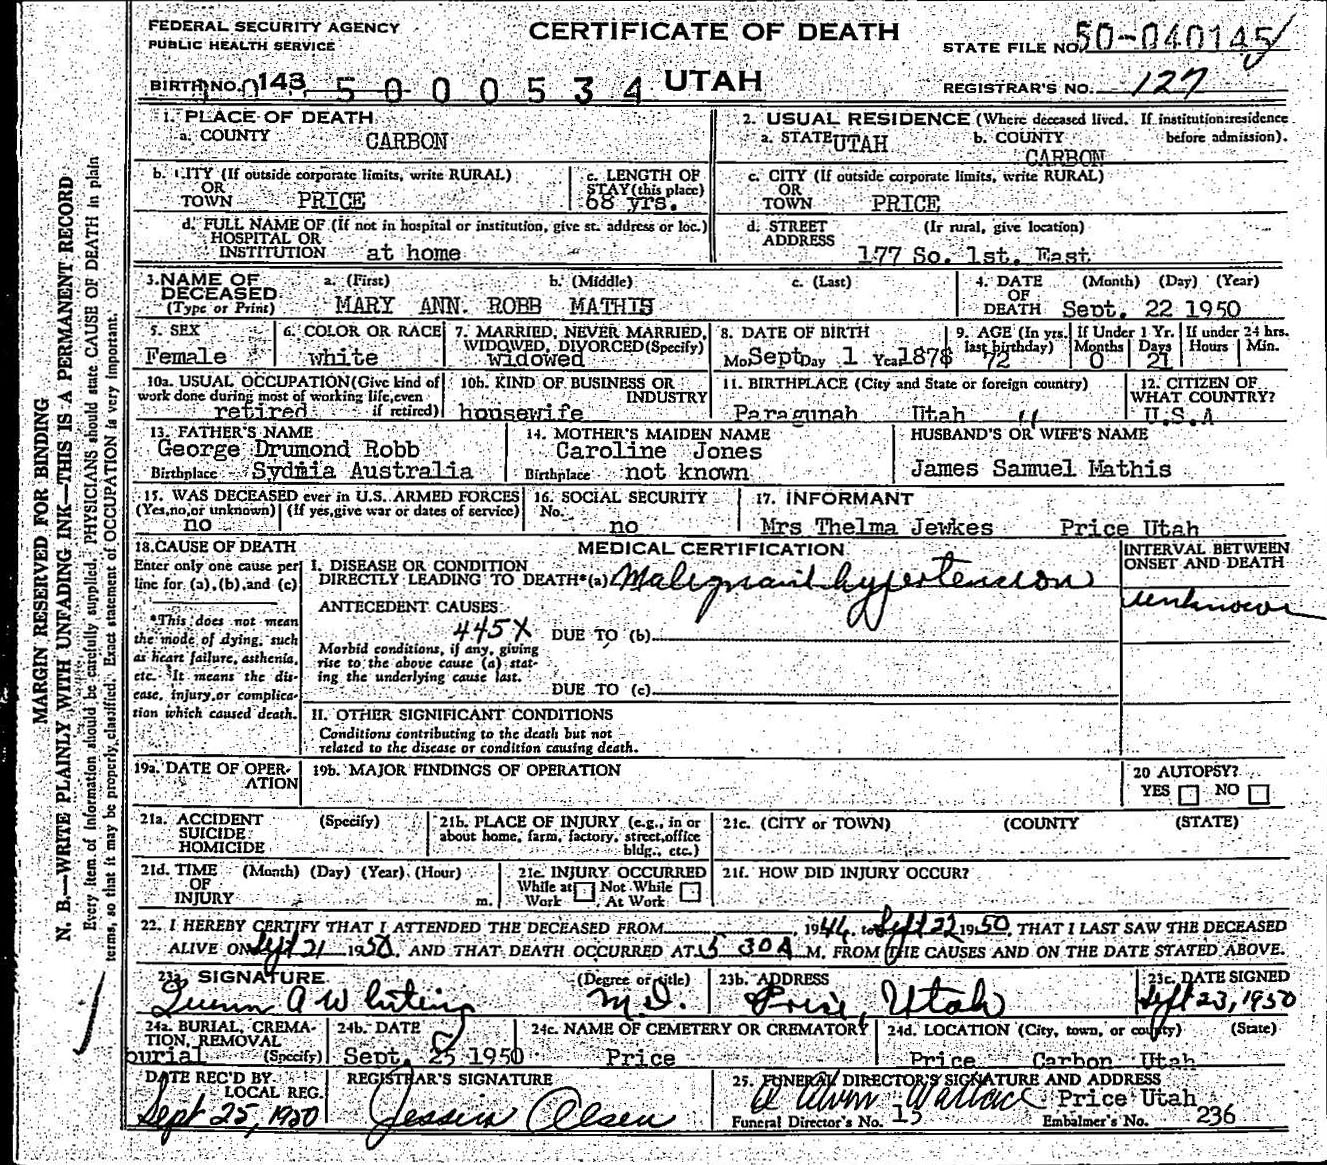 FEDERAL SECURITY AGENCY
PUBLIC HEALTH SERVICE
CERTIFICATE OF DEATH
STATE FILE NO. 50-040145
BIRTH NO. 143 5000534 UTAH
REGISTRAR'S NO. 127
MARGIN RESERVED FOR BINDING
N. B.—WRITE PLAINLY WITH UNFADING INK—THIS IS A PERMANENT RECORD
Every item of information should be carefully supplied. PHYSICIANS should state CAUSE OF DEATH in plain
terms, so that it may be properly classified. Exact statement of OCCUPATION is very important.
1. PLACE OF DEATH
a. COUNTY CARBON
2. USUAL RESIDENCE (Where deceased lived. If institution: residence
a. STATE UTAH b. COUNTY before admission).
CARBON
b. CITY (If outside corporate limits, write RURAL)
OR
TOWN PRICE
c. LENGTH OF
STAY (this place)
68 yrs.
c. CITY (If outside corporate limits, write RURAL)
OR
TOWN PRICE
d. FULL NAME OF (If not in hospital or institution, give st. address or loc.)
HOSPITAL OR
INSTITUTION at home
d. STREET (If rural, give location)
ADDRESS
177 So. 1st. East
3. NAME OF a. (First) b. (Middle) c. (Last)
DECEASED
(Type or Print) MARY ANN. ROBB MATHIS
4. DATE (Month) (Day) (Year)
OF
DEATH Sept. 22 1950
5. SEX
Female
6. COLOR OR RACE
white
7. MARRIED, NEVER MARRIED,
WIDOWED, DIVORCED (Specify)
widowed
8. DATE OF BIRTH
Mo. Sept Day 1 Year 1878
9. AGE (In yrs. last birthday)
72
If Under 1 Yr.
Months Days
0 21
If under 24 hrs.
Hours Min.
10a. USUAL OCCUPATION (Give kind of
work done during most of working life, even
retired if retired)
10b. KIND OF BUSINESS OR
INDUSTRY
housewife
11. BIRTHPLACE (City and State or foreign country)
Paragunah Utah
12. CITIZEN OF
WHAT COUNTRY?
U.S.A
13. FATHER'S NAME
George Drumond Robb
Birthplace Sydmia Australia
14. MOTHER'S MAIDEN NAME
Caroline Jones
Birthplace not known
HUSBAND'S OR WIFE'S NAME
James Samuel Mathis
15. WAS DECEASED ever in U.S. ARMED FORCES
(Yes, no, or unknown) (If yes, give war or dates of service)
no
16. SOCIAL SECURITY
No.
no
17. INFORMANT
Mrs Thelma Jewkes Price Utah
18. CAUSE OF DEATH
Enter only one cause per
line for (a), (b), and (c)
*This does not mean
the mode of dying, such
as heart failure, asthenia,
etc. It means the dis-
ease, injury, or complica-
tion which caused death.
MEDICAL CERTIFICATION
I. DISEASE OR CONDITION
DIRECTLY LEADING TO DEATH* (a) Malignant hypertension
ANTECEDENT CAUSES
445X DUE TO (b)
Morbid conditions, if any, giving
rise to the above cause (a) stat-
ing the underlying cause last.
DUE TO (c)
II. OTHER SIGNIFICANT CONDITIONS
Conditions contributing to the death but not
related to the disease or condition causing death.
INTERVAL BETWEEN
ONSET AND DEATH
unknown
19a. DATE OF OPER-
ATION
19b. MAJOR FINDINGS OF OPERATION
20 AUTOPSY?
YES NO
21a. ACCIDENT (Specify)
SUICIDE
HOMICIDE
21b. PLACE OF INJURY (e.g., in or
about home, farm, factory, street, office
bldg., etc.)
21c. (CITY or TOWN) (COUNTY) (STATE)
21d. TIME (Month) (Day) (Year) (Hour)
OF
INJURY m.
21e. INJURY OCCURRED
While at Not While
Work At Work
21f. HOW DID INJURY OCCUR?
22. I HEREBY CERTIFY THAT I ATTENDED THE DECEASED FROM , 1944, to Sept 22 1950, THAT I LAST SAW THE DECEASED
ALIVE ON Sept 21 1950, AND THAT DEATH OCCURRED AT 5 30A M. FROM THE CAUSES AND ON THE DATE STATED ABOVE.
23a. SIGNATURE (Degree or title)
Quinn A Whiting M.D.
23b. ADDRESS
Price, Utah
23c. DATE SIGNED
Sept 23, 1950
24a. BURIAL, CREMA-
TION, REMOVAL
burial (Specify)
24b. DATE
Sept. 25 1950
24c. NAME OF CEMETERY OR CREMATORY
Price
24d. LOCATION (City, town, or county) (State)
Price Carbon Utah
DATE REC'D BY
LOCAL REG.
Sept 25, 1950
REGISTRAR'S SIGNATURE
Jessie Olsen
25. FUNERAL DIRECTOR'S SIGNATURE AND ADDRESS
Wallace Price Utah
Funeral Director's No. 15 Embalmer's No. 236